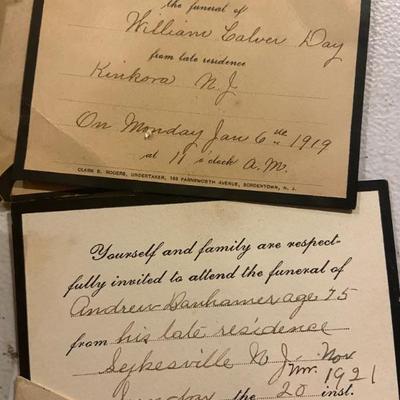 the funeral of
William Calver Day
from late residence
Kinkora N.J.
On Monday Jan 6th 1919
at 11 o'clock A.M.
CLARK B. ROGERS, UNDERTAKER, 169 FARNSWORTH AVENUE, BORDENTOWN, N. J.
Yourself and family are respect-
fully invited to attend the funeral of
Andrew Danhamer age 75
from his late residence
Sykesville N.J. Nov
1921
Sunday the 20 inst.